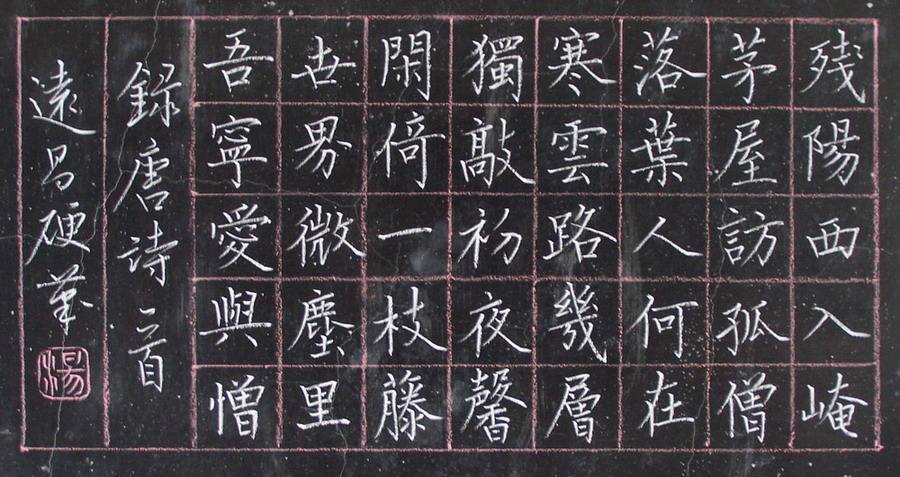 殘陽西入崦
茅屋訪孤僧
落葉人何在
寒雲路幾層
獨敲初夜馨
閑倚一枝藤
世界微塵里
吾寧愛與憎
錄唐詩一首
遠昌硬筆
湯